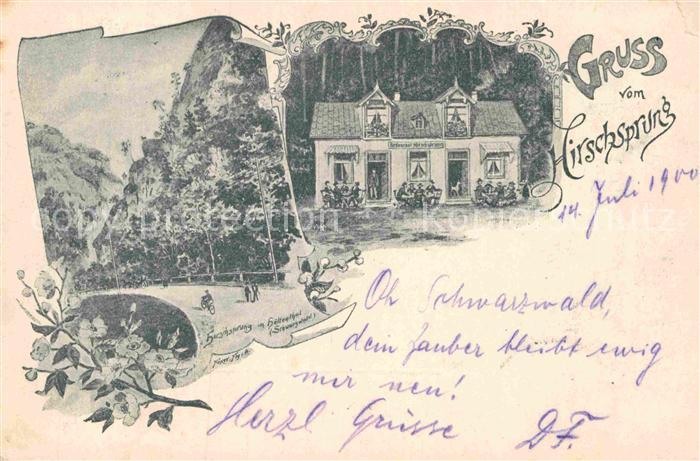 GRUSS
vom
Hirschsprung
14. Juli 1900
Restaurant Hirschsprung
Hirschsprung im Höllenthal
(Schwarzwald)
Oh Schwarzwald,
dein Zauber bleibt ewig
mir neu!
Herzl Grüsse DF.
copyright protection Kopierschutz